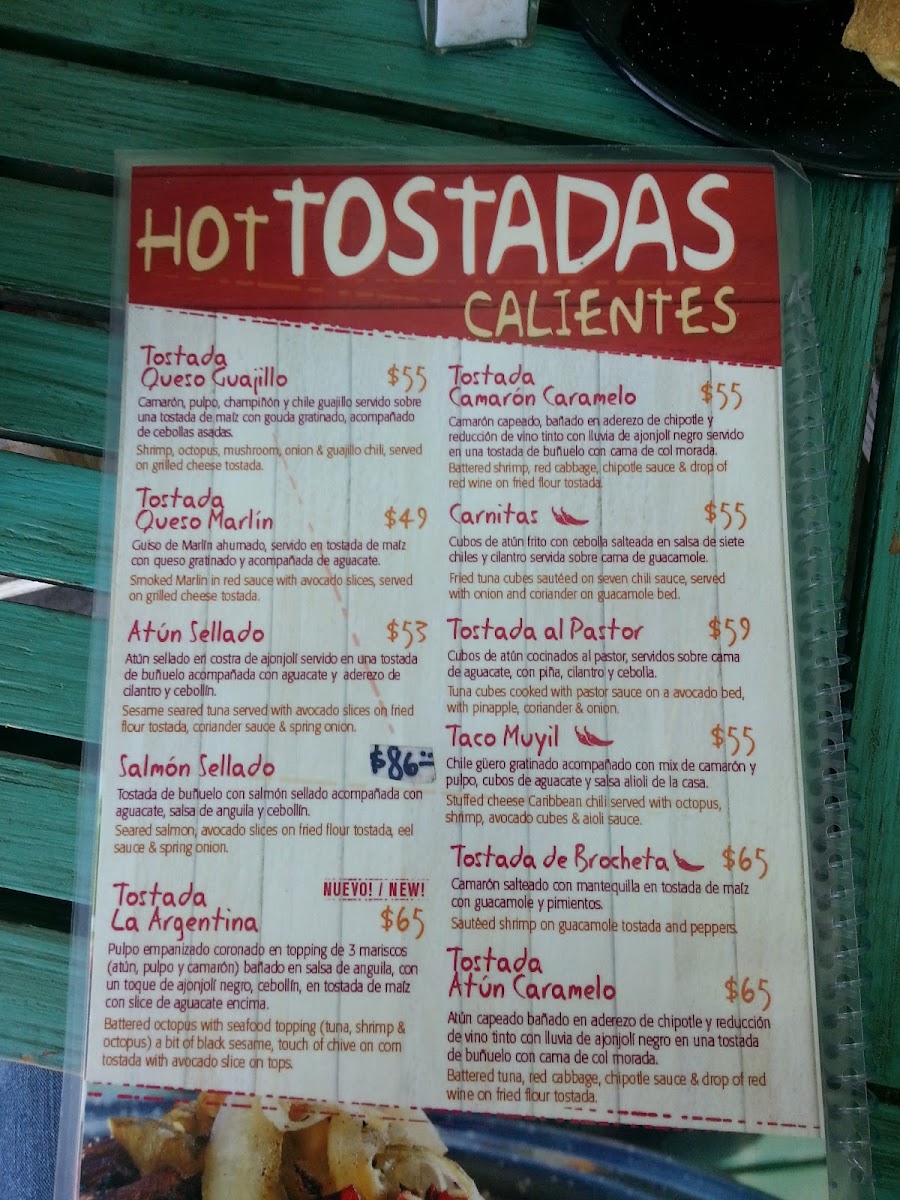 HOT TOSTADAS
CALIENTES
Tostada
Queso Guajillo $55
Camarón, pulpo, champiñón y chile guajillo servido sobre
una tostada de maíz con gouda gratinado, acompañado
de cebollas asadas.
Shrimp, octopus, mushroom, onion & guajillo chili, served
on grilled cheese tostada.
Tostada
Queso Marlín $49
Guiso de Marlín ahumado, servido en tostada de maíz
con queso gratinado y acompañada de aguacate.
Smoked Marlin in red sauce with avocado slices, served
on grilled cheese tostada.
Atún Sellado $53
Atún sellado en costra de ajonjolí servido en una tostada
de buñuelo acompañada con aguacate y aderezo de
cilantro y cebollín.
Sesame seared tuna served with avocado slices on fried
flour tostada, coriander sauce & spring onion.
Salmón Sellado $86
Tostada de buñuelo con salmón sellado acompañada con
aguacate, salsa de anguila y cebollín.
Seared salmon, avocado slices on fried flour tostada, eel
sauce & spring onion.
NUEVO! / NEW!
Tostada
La Argentina $65
Pulpo empanizado coronado en topping de 3 mariscos
(atún, pulpo y camarón) bañado en salsa de anguila, con
un toque de ajonjolí negro, cebollín, en tostada de maíz
con slice de aguacate encima.
Battered octopus with seafood topping (tuna, shrimp &
octopus) a bit of black sesame, touch of chive on corn
tostada with avocado slice on tops.
Tostada
Camarón Caramelo $55
Camarón capeado, bañado en aderezo de chipotle y
reducción de vino tinto con lluvia de ajonjolí negro servido
en una tostada de buñuelo con cama de col morada.
Battered shrimp, red cabbage, chipotle sauce & drop of
red wine on fried flour tostada.
Carnitas $55
Cubos de atún frito con cebolla salteada en salsa de siete
chiles y cilantro servida sobre cama de guacamole.
Fried tuna cubes sautéed on seven chili sauce, served
with onion and coriander on guacamole bed.
Tostada al Pastor $59
Cubos de atún cocinados al pastor, servidos sobre cama
de aguacate, con piña, cilantro y cebolla.
Tuna cubes cooked with pastor sauce on a avocado bed,
with pinapple, coriander & onion.
Taco Muyil $55
Chile güero gratinado acompañado con mix de camarón y
pulpo, cubos de aguacate y salsa alioli de la casa.
Stuffed cheese Caribbean chili served with octopus,
shrimp, avocado cubes & aioli sauce.
Tostada de Brocheta $65
Camarón salteado con mantequilla en tostada de maíz
con guacamole y pimientos.
Sautéed shrimp on guacamole tostada and peppers.
Tostada
Atún Caramelo $65
Atún capeado bañado en aderezo de chipotle y reducción
de vino tinto con lluvia de ajonjolí negro en una tostada
de buñuelo con cama de col morada.
Battered tuna, red cabbage, chipotle sauce & drop of red
wine on fried flour tostada.